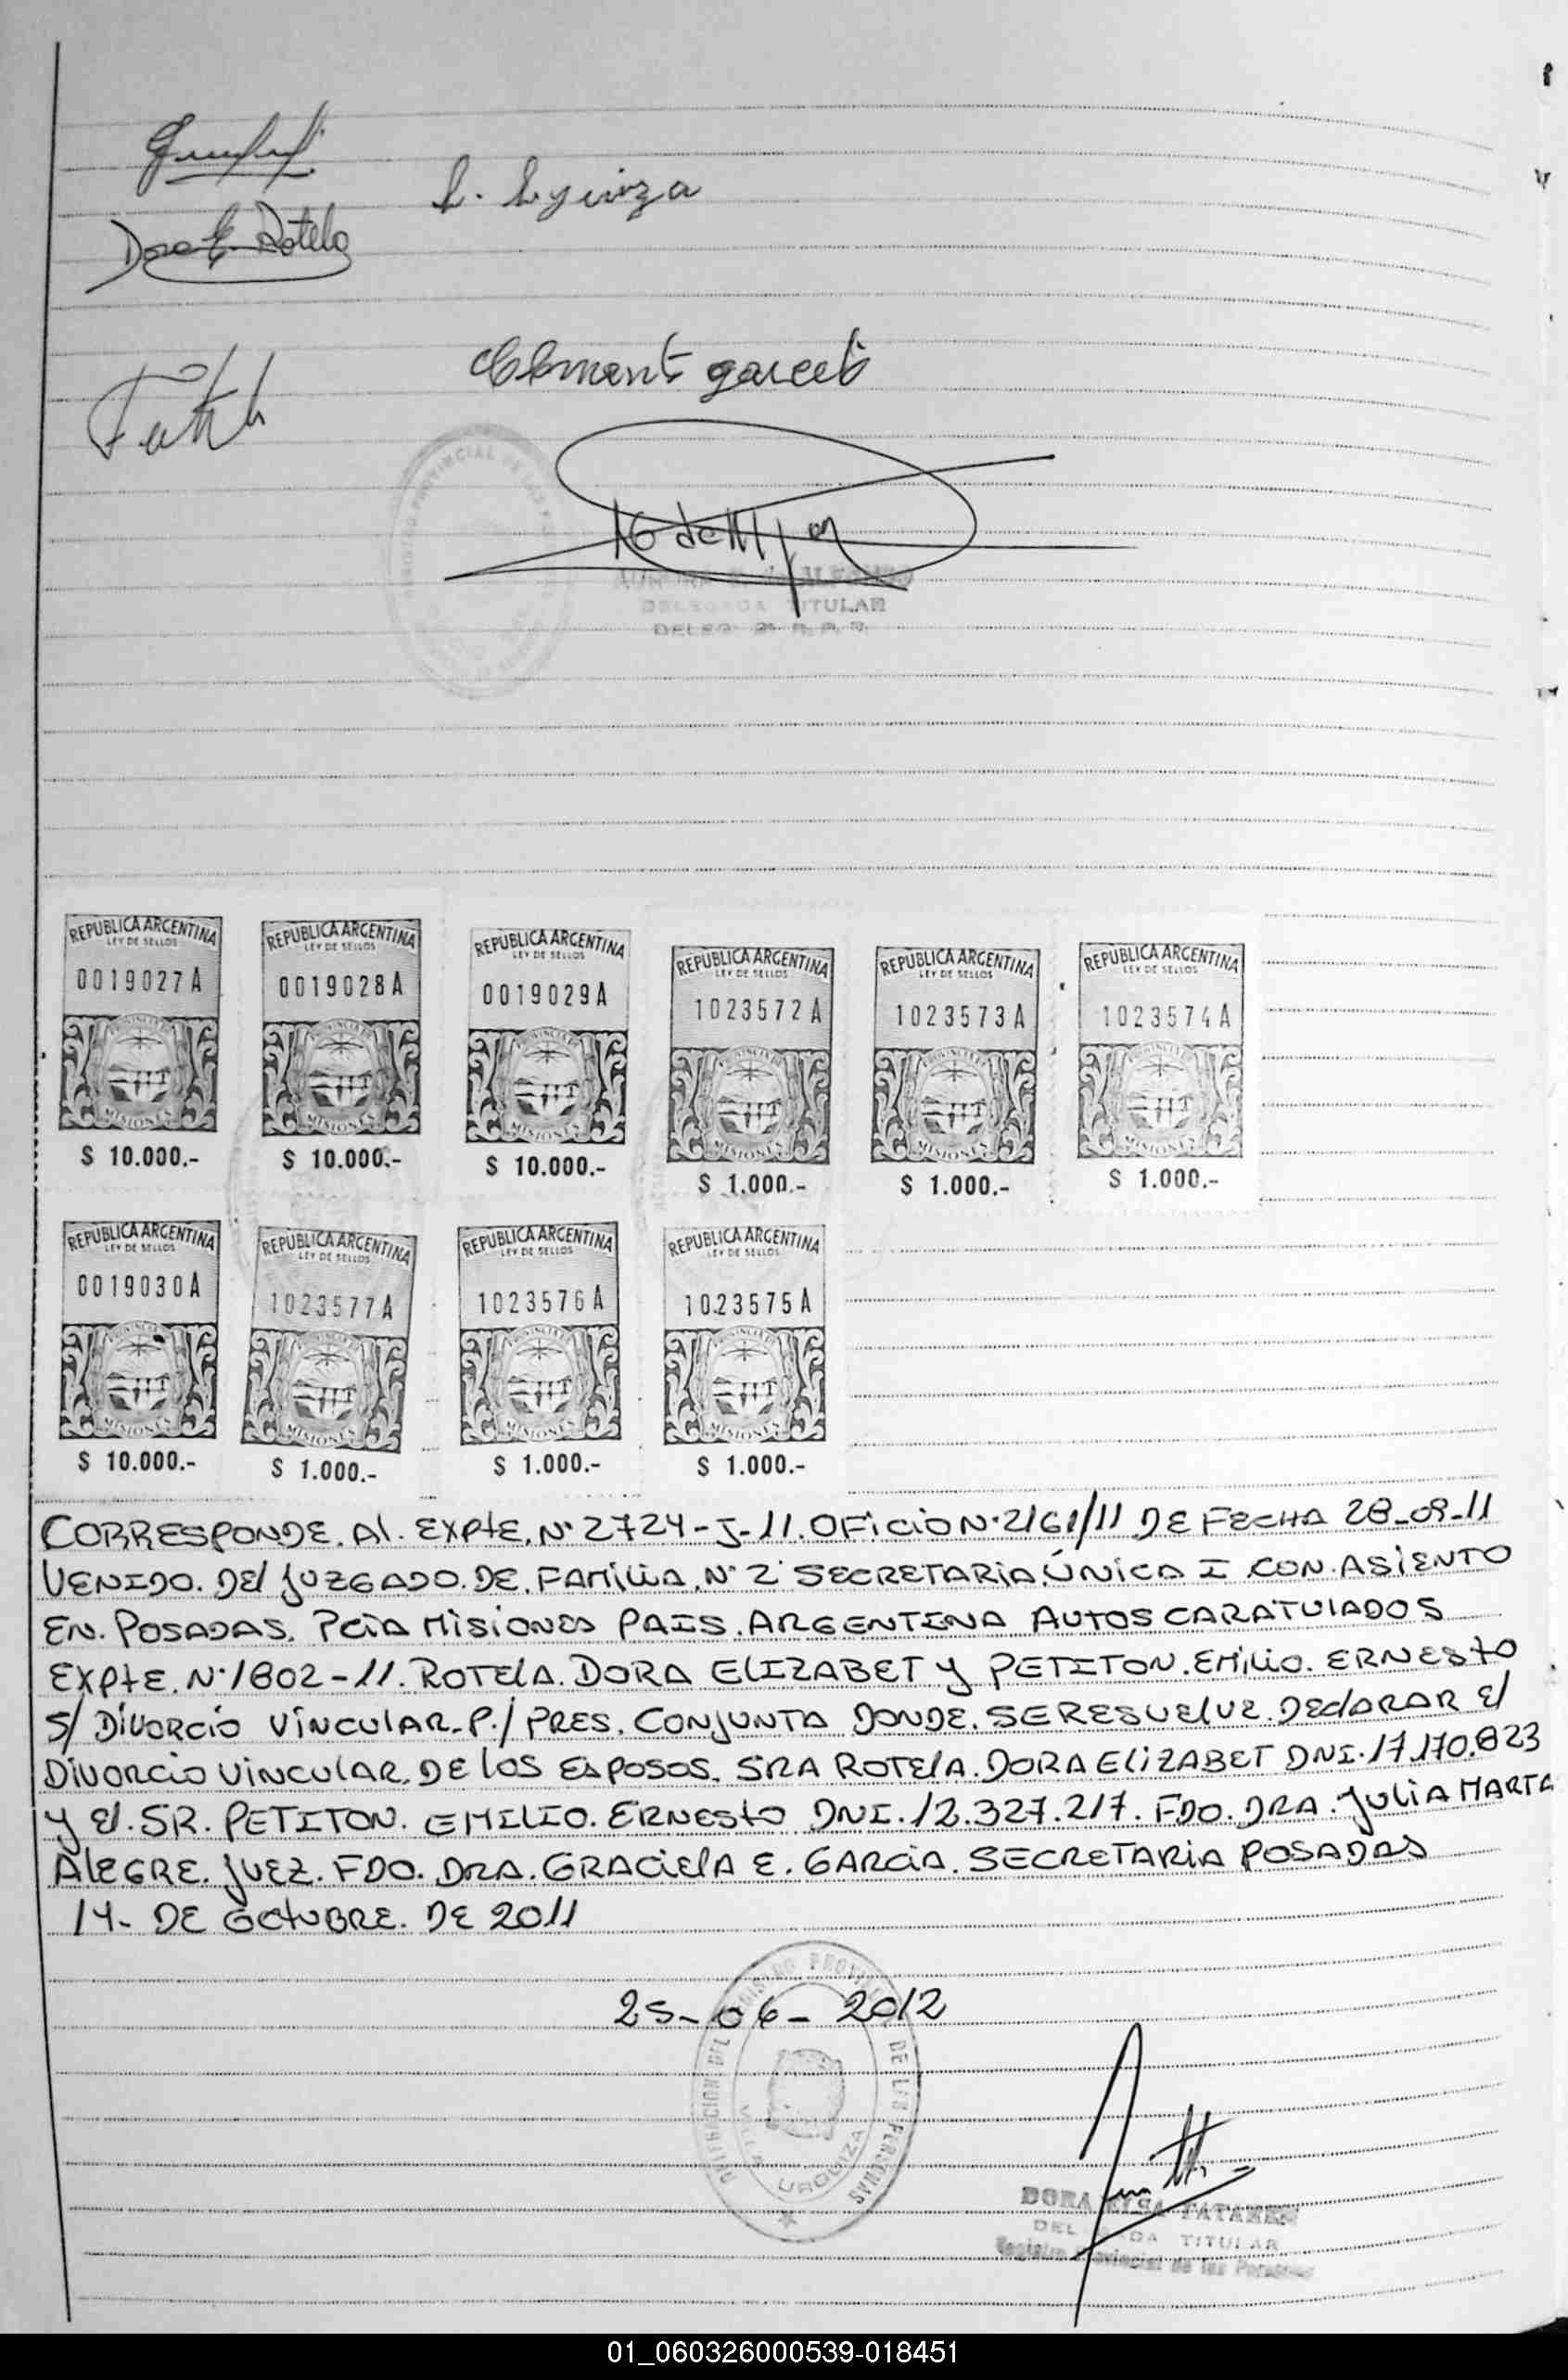 Dora E. Rotela
DELEGADA TITULAR
REPUBLICA ARGENTINA REPUBLICA ARGENTINA REPUBLICA ARGENTINA REPUBLICA ARGENTINA REPUBLICA ARGENTINA REPUBLICA ARGENTINA
LEY DE SELLOS LEY DE SELLOS LEY DE SELLOS LEY DE SELLOS LEY DE SELLOS LEY DE SELLOS
0019027A 0019028A 0019029A 1023572A 1023573A 1023574A
MISIONES MISIONES MISIONES MISIONES MISIONES MISIONES
$ 10.000.- $ 10.000.- $ 10.000.- $ 1.000.- $ 1.000.- $ 1.000.-
REPUBLICA ARGENTINA REPUBLICA ARGENTINA REPUBLICA ARGENTINA REPUBLICA ARGENTINA
LEY DE SELLOS LEY DE SELLOS LEY DE SELLOS LEY DE SELLOS
0019030A 1023577A 1023576A 1023575A
MISIONES MISIONES MISIONES MISIONES
$ 10.000.- $ 1.000.- $ 1.000.- $ 1.000.-
CORRESPONDE. Al. EXPtE. N° 2724-J-11. OFiCiO N° 2161/11 DE FECHA 28-09-11
VENIDO. DEl JUZGADO. DE. FAMiLiA. N° 2 SECRETARiA ÚNiCA I CON. ASiENTO
EN. POSADAS. PCiA MiSiONES PAIS. ARGENTINA AUTOS CARATULADOS
EXPtE. N° 1802-11. ROTElA. DORA ELIZABET y PETITON. EMiLiO. ERNEStO
S/ DiVORCiO ViNCULAR. P./ PRES. CONJUNTA DONDE. SE RESUELVE. DEClARAR El
DiVORCiO ViNCULAR. DE LOS ESPOSOS. SRA ROTElA. DORA ELiZABET DNI. 17.170.823
y El. SR. PETITON. EMILIO. ERNEStO DNI. 12.327.217. FDO. DRA. JULiA MARTA
AlEGRE. JUEZ. FDO. DRA. GRACiElA E. GARCiA. SECRETARiA POSADAS
14- DE OCtUBRE. DE 2011
25-06-2012
DELEGACION DEL REGISTRO PROVINCIAL DE LAS PERSONAS
VILLA URQUIZA
DORA ELSA
DELEGADA TITULAR
Registro Provincial de las Personas
01_060326000539-018451